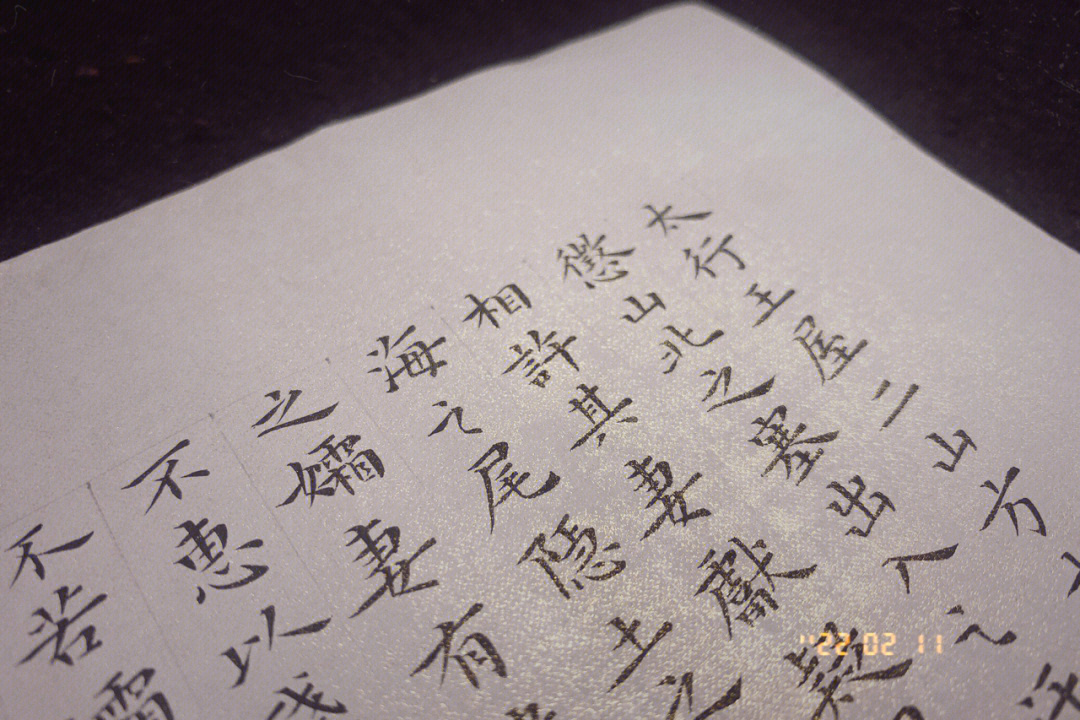 太行王屋二山方
懲山北之塞出入之迂
相許其妻獻疑
海之尾隱土之
之孀妻有
不惠以
不若孀
'22 02 11